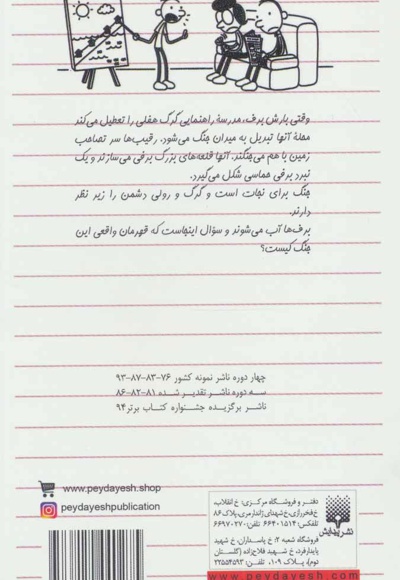 وقتی بارش برف، مدرسهٔ راهنمایی گرگ هفلی را تعطیل می‌کند
محلهٔ آنها تبدیل به میدان جنگ می‌شود. رقیب‌ها سر تصاحب
زمین با هم می‌جنگند. آنها قلعه‌های بزرگ برفی می‌سازند و یک
نبرد برفی حماسی شکل می‌گیرد.
جنگ برای نجات است و گرگ و رولی دشمن را زیر نظر
دارند.
برف‌ها آب می‌شوند و سؤال اینجاست که قهرمان واقعی این
جنگ کیست؟
چهار دوره ناشر نمونه کشور ۷۶-۸۳-۸۷-۹۳
سه دوره ناشر تقدیر شده ۸۱-۸۲-۸۶
ناشر برگزیده جشنواره کتاب برتر۹۴
www.peydayesh.shop
peydayeshpublication
دفتر و فروشگاه مرکزی: خ انقلاب،
خ فخررازی، خ شهدای ژاندارمری، پلاک ۸۶
تلفکس: ۶۶۴۰۱۵۱۴ تلفن: ۶۶۹۷۰۲۷۰
فروشگاه شعبه ۲: خ پاسداران، خ شهید
پایدارفرد، خ شهید فلاح‌زاده (گلستان
دوم)، پلاک ۱۰۹، تلفن: ۲۲۵۵۴۵۹۳
نشر پیدایش
www.peydayesh.com